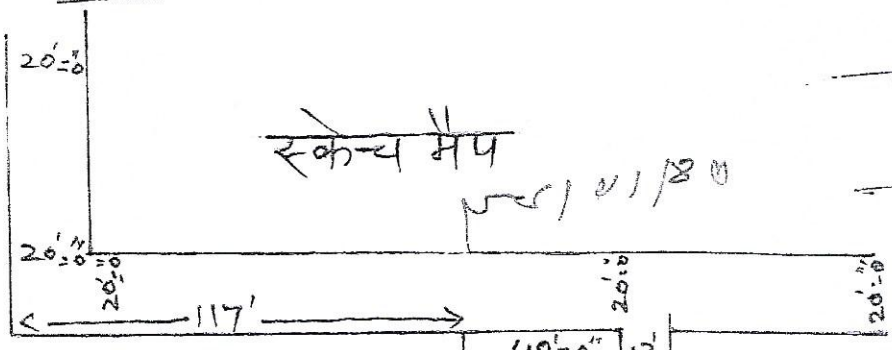 20'=0"
स्केच मैप
20'=0"
20'=0
20'=0"
20'=0"
117'